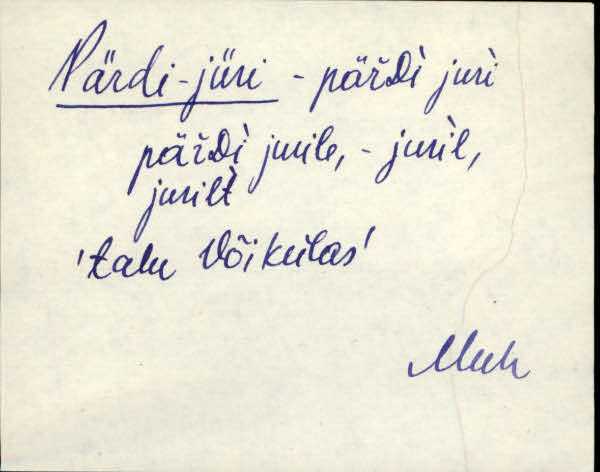 Pärdi-jüri - pär̆Dì jurì
pär̆Dì jurile, - juril̀,
jurilt̀
'talu Võikülas'
Muh